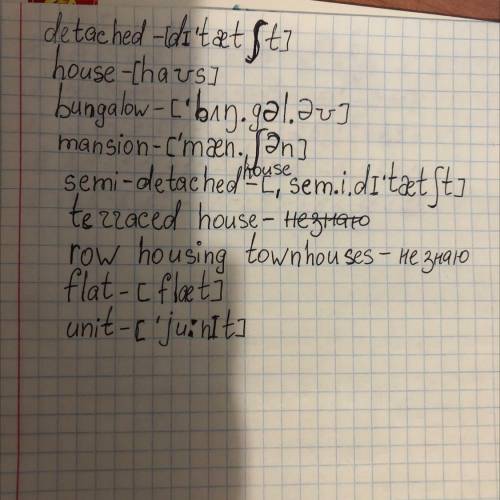 detached -[dɪ'tætʃt]
house -[haʊs]
bungalow - ['bʌŋ.gəl.əʊ]
mansion - ['mæn.ʃən]
house
semi-detached - [ˌsem.i.dɪ'tætʃt]
terraced house - не знаю
row housing townhouses - не знаю
flat - [flæt]
unit - ['juːnɪt]